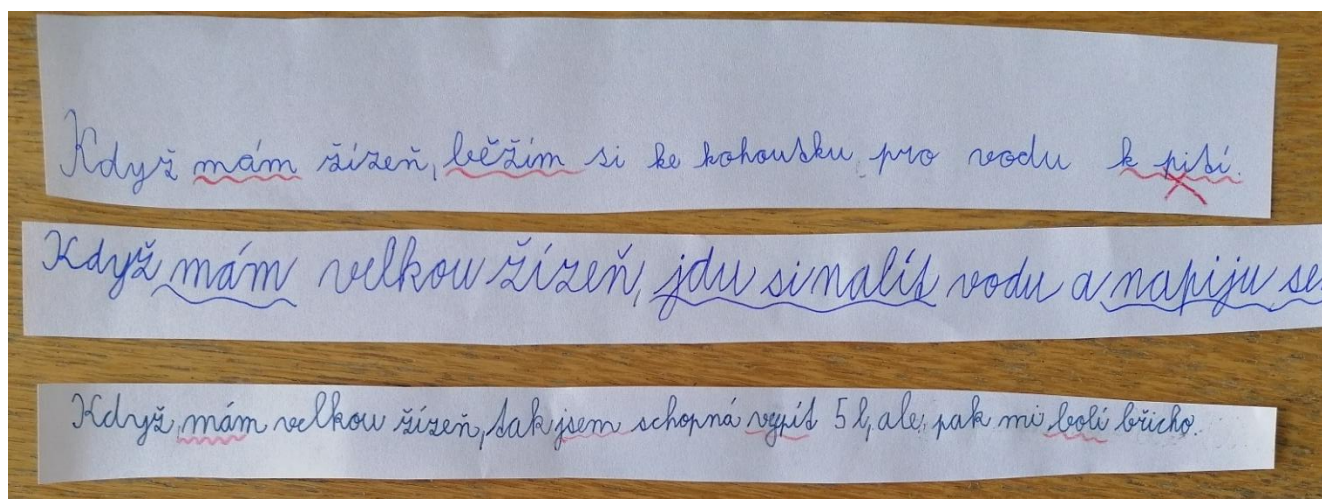 Když mám žízeň, běžím si ke kohoutku pro vodu k pití.
Když mám velkou žízeň, jdu si nalít vodu a napiju se
Když mám velkou žízeň, tak jsem schopná vypít 5 l, ale pak mi bolí břicho.